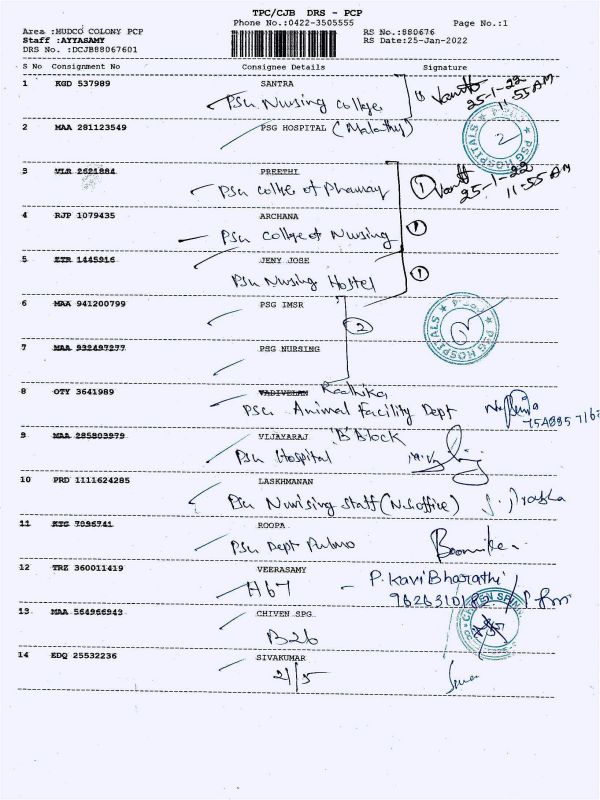 TPC/CJB DRS - PCP
Phone No.:0422-3505555 Page No.:1
Area :HUDCO COLONY PCP RS No.:880676
Staff :AYYASAMY RS Date:25-Jan-2022
DRS No. :DCJB88067601
S No Consignment No Consignee Details Signature
1 KGD 537989 SANTRA
PSG Nursing college 25-1-22
11.55 AM
2 MAA 281123549 PSG HOSPITAL (Malathy) PSG HOSPITALS
3 VLR 2621884 PREETHI 25-1-22
PSG collge of Pharmay 1 11-55 AM
4 RJP 1079435 ARCHANA
PSG collge of Nursing 1
5 ZTR 1445916 JENY JOSE
PSG Nursing Hostel 1
6 MAA 941200799 PSG IMSR
2 PSG HOSPITALS
7 MAA 932497277 PSG NURSING
8 OTY 3641989 VADIVELAN Radhika
PSG Animal Facility Dept
9 MAA 285803979 VIJAYARAJ 'B' Block
PSG Hospital
10 PRD 1111624285 LASKHMANAN
PSG Nurising staff (N.S.office)
11 KTG 7096741 ROOPA
PSG Dept Pulmo
12 TRZ 360011419 VEERASAMY
H67 - P. KaviBharathi
13 MAA 564966943 CHIVEN SPG
B26
14 EDQ 25532236 SIVAKUMAR
21/5